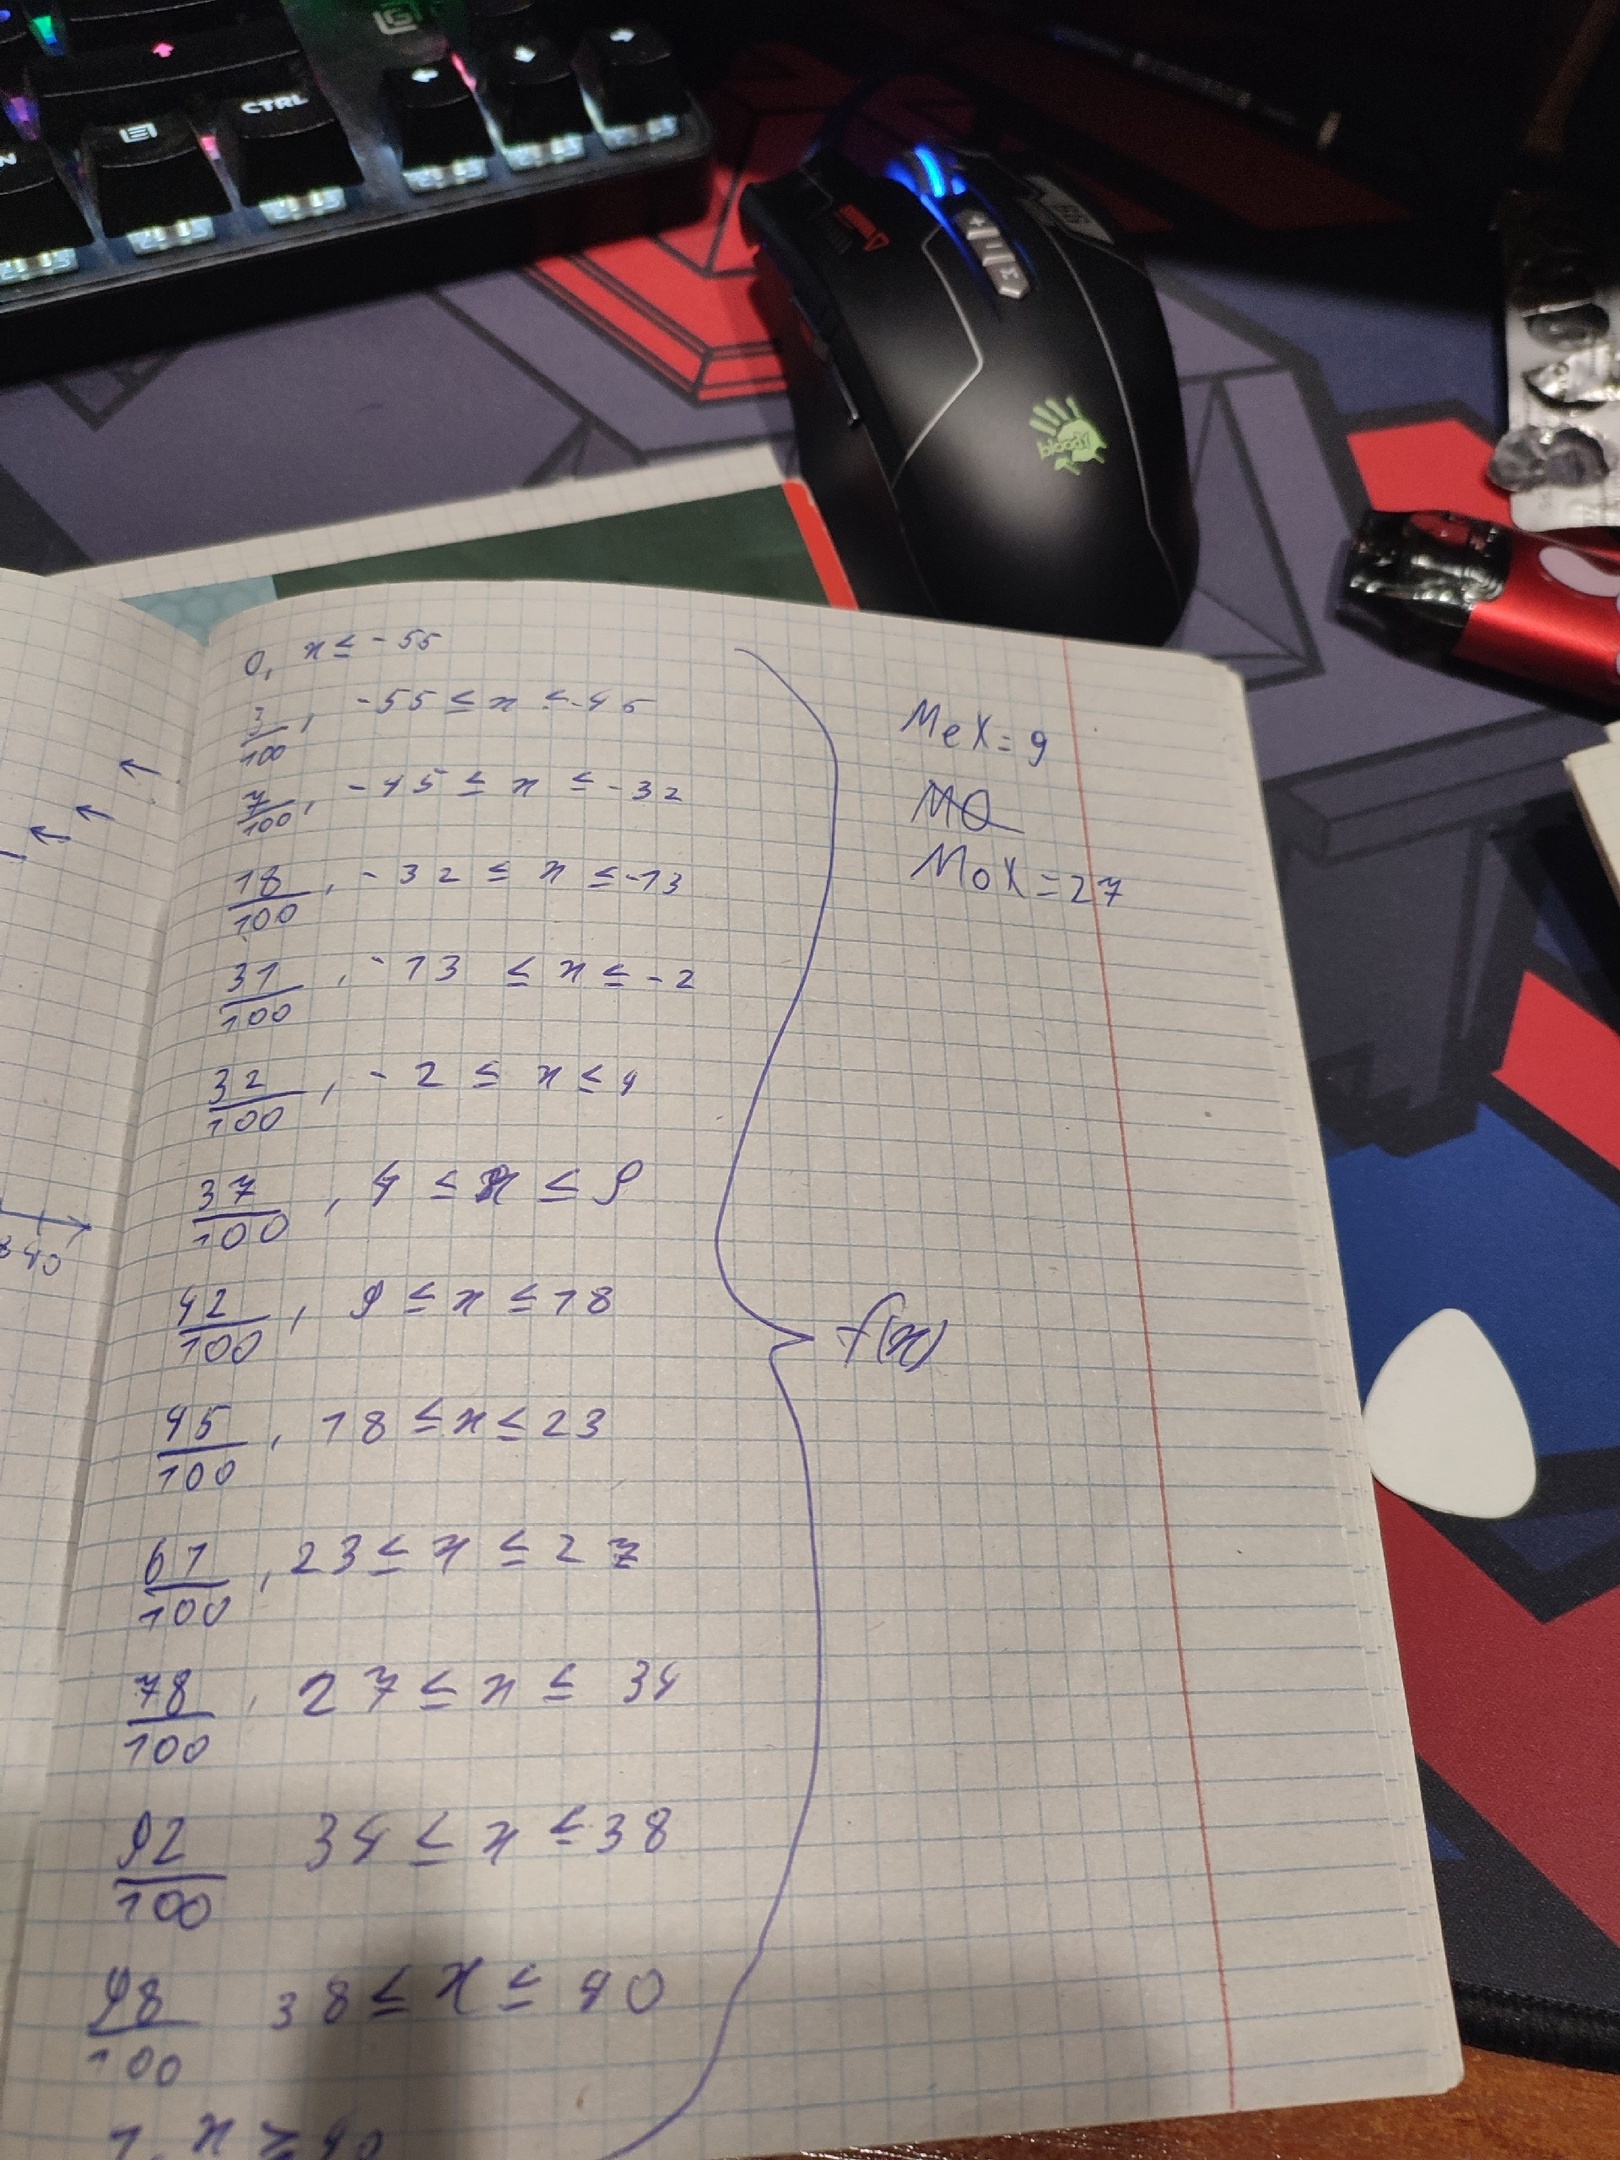 CTRL
bloody
0, x ≤ -55
3/100, -55 ≤ x ≤ -45
7/100, -45 ≤ x ≤ -32
18/100, -32 ≤ x ≤ -13
31/100, -13 ≤ x ≤ -2
32/100, -2 ≤ x ≤ 4
37/100, 4 ≤ x ≤ 9
42/100, 9 ≤ x ≤ 18
45/100, 18 ≤ x ≤ 23
61/100, 23 ≤ x ≤ 27
78/100, 27 ≤ x ≤ 34
92/100 34 ≤ x ≤ 38
98/100 38 ≤ x ≤ 40
1, x ≥ 40
f(x)
MeX = 9
MoX = 27
40